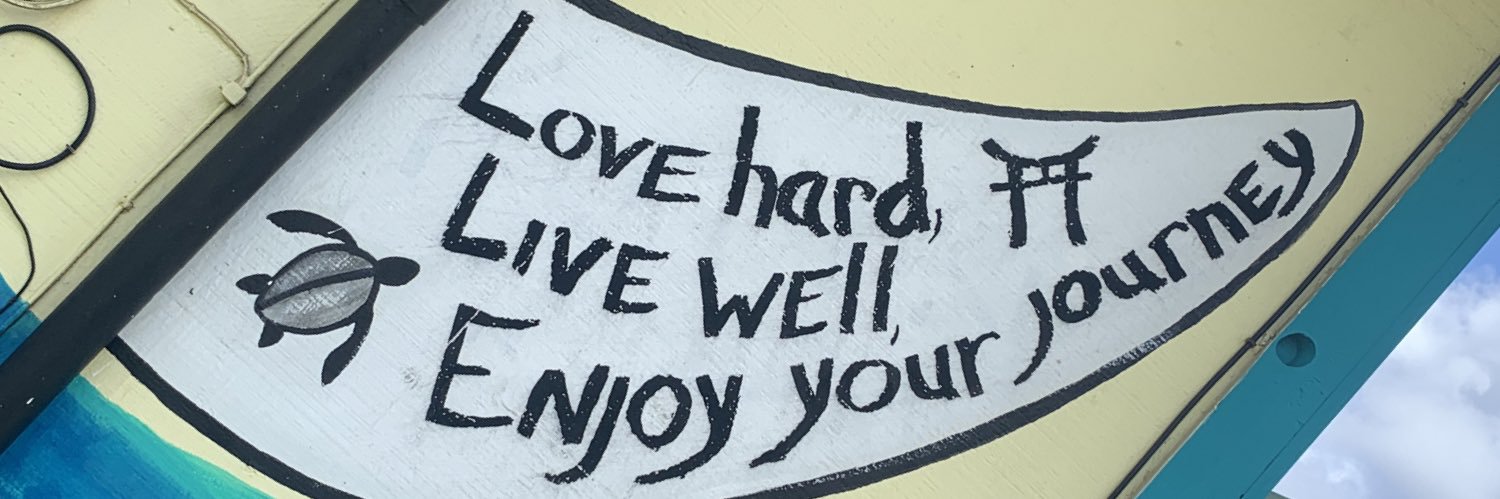 Love hard,
Live well,
Enjoy your journey